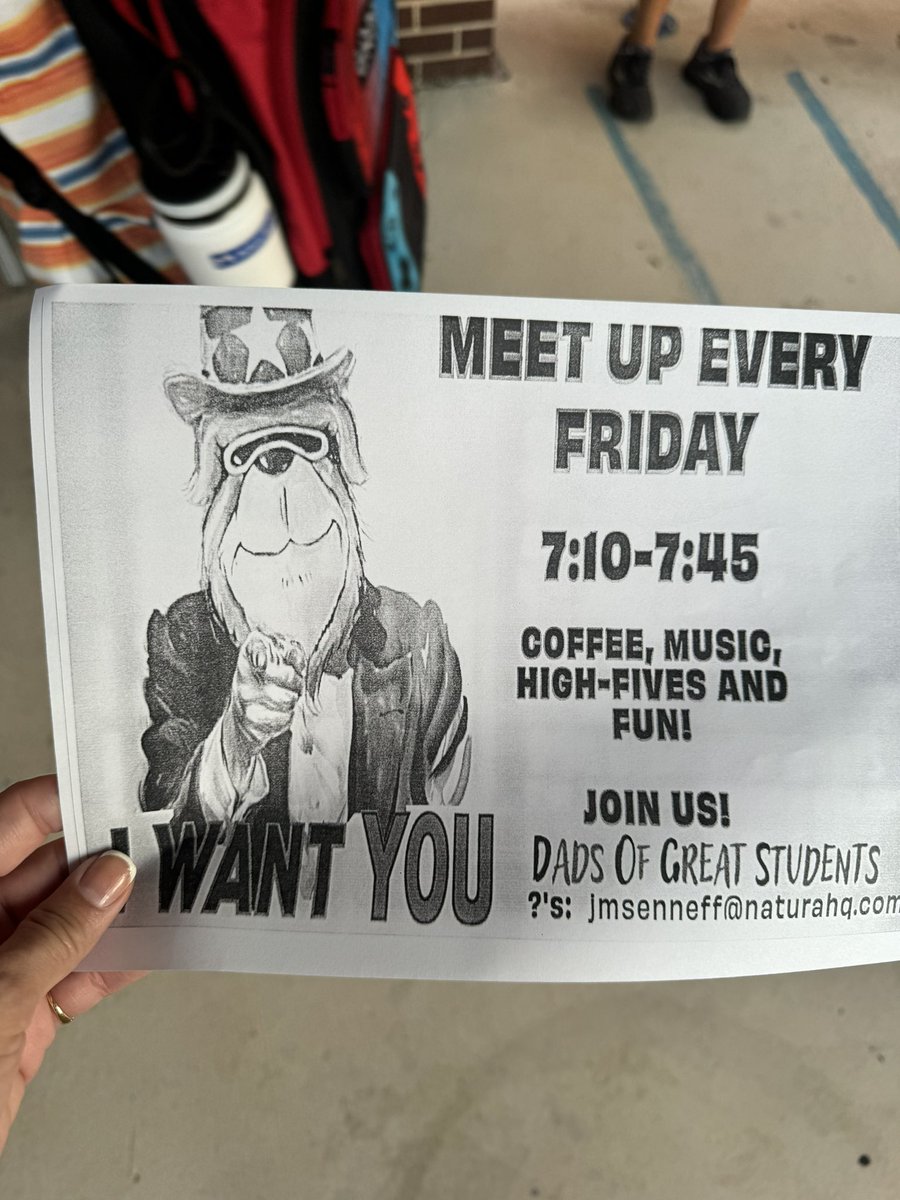 MEET UP EVERY
FRIDAY
7:10-7:45
COFFEE, MUSIC,
HIGH-FIVES AND
FUN!
JOIN US!
DADS OF GREAT STUDENTS
?'s: jmsenneff@naturahq.com
I WANT YOU